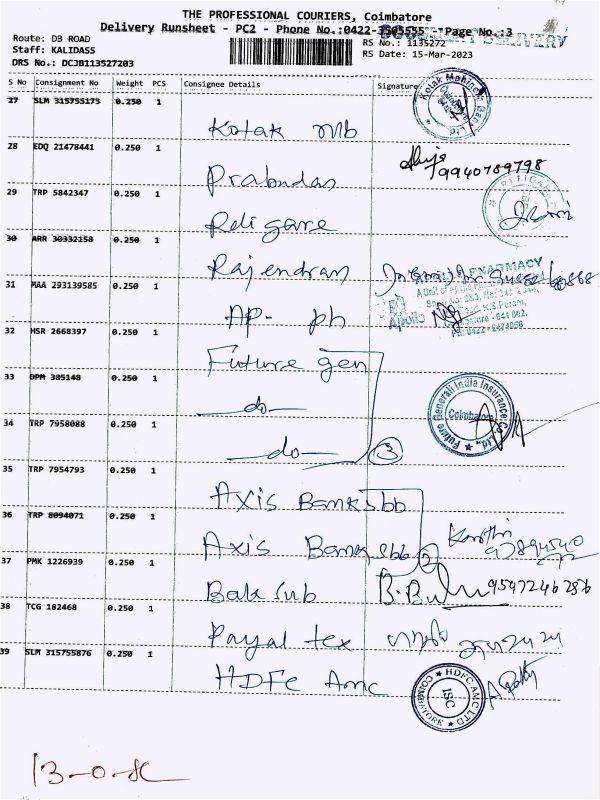 THE PROFESSIONAL COURIERS, Coimbatore
Delivery Runsheet - PC2 - Phone No.:0422- Page No.:3
Route: DB ROAD
Staff: KALIDASS
RS No.: 1135272
RS Date: 15-Mar-2023
DRS No.: DCJB113527203
S No Consignment No Weight PCS Consignee Details Signature
27 SLM 315755173 0.250 1
Kotak Mb
28 EDQ 21478441 0.250 1
9940789798
Prabudas
29 TRP 5842347 0.250 1
Religare
30 ARR 30332158 0.250 1
Rajendran
31 MAA 293139585 0.250 1
AP- ph
Apollo
32 HSR 2668397 0.250 1
Future gen
33 DPM 385148 0.250 1
-do-
Future Generali India Insurance Co. Ltd.
Coimbatore
34 TRP 7958088 0.250 1
-do- 3
35 TRP 7954793 0.250 1
Axis Bank sbb
36 TRP 8094071 0.250 1
Axis Bank sbb 2
37 PMK 1226939 0.250 1
Bala sub
38 TCG 182468 0.250 1
Payal tex
39 SLM 315755876 0.250 1
HDFC Amc
HDFC AMC LTD
ISC
COIMBATORE